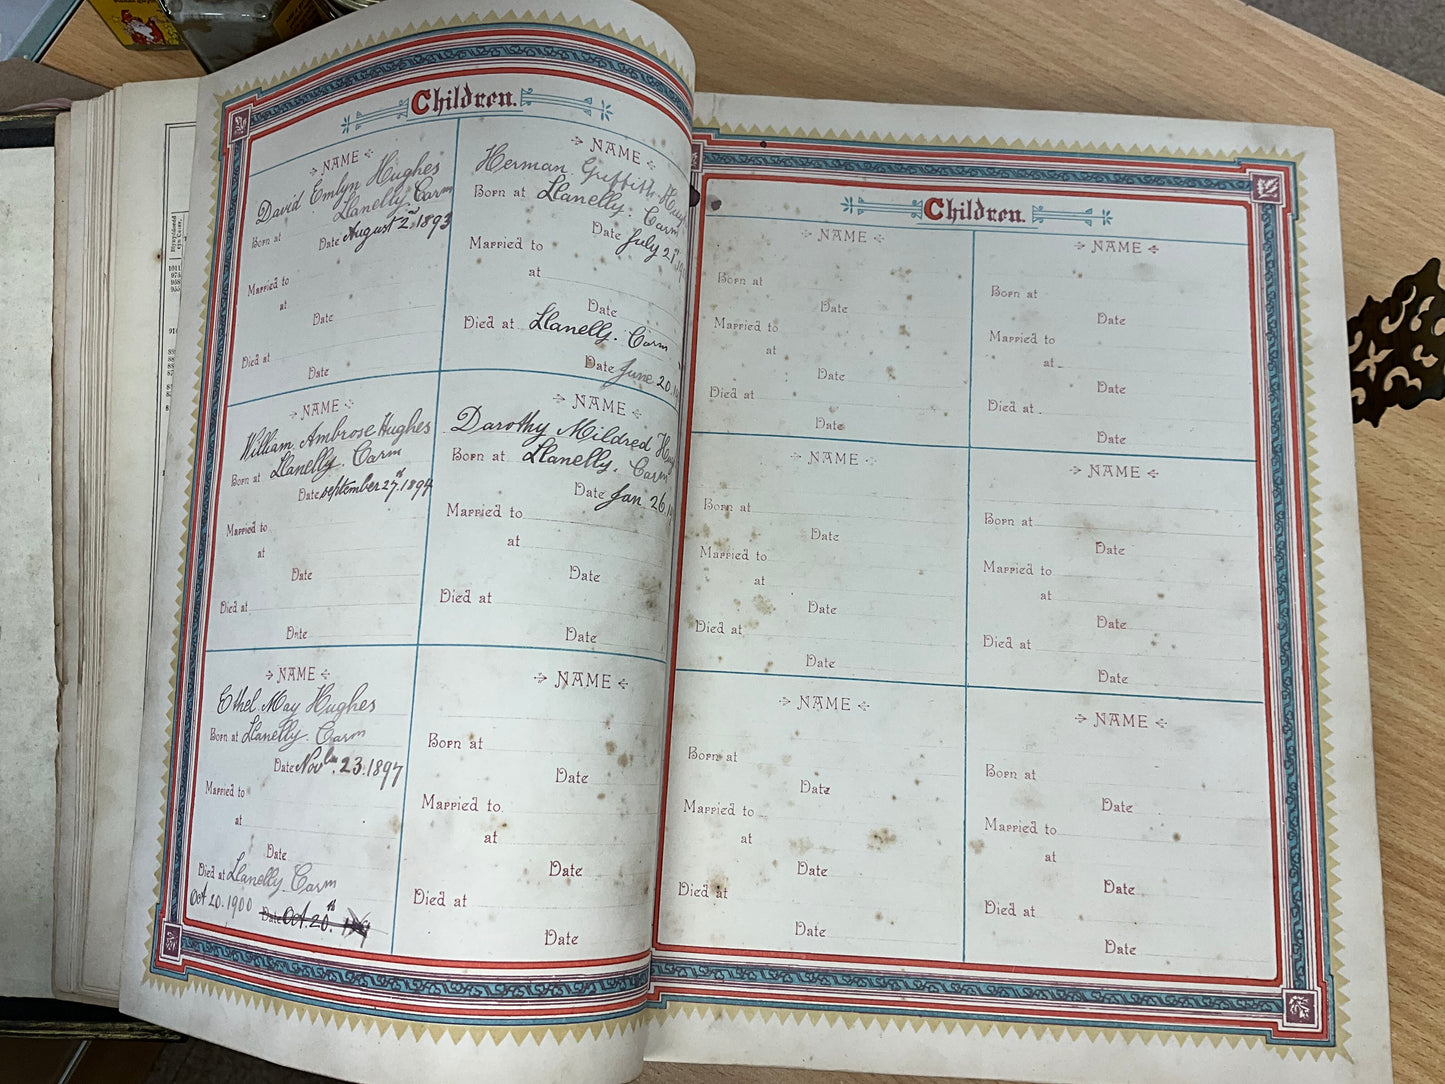 Children.
NAME
David Emlyn Hughes
Llanelly. Carm
Born at
Date August 2nd. 1893
Married to
at
Date
Died at
Date
NAME
Herman Griffith
Born at Llanelly. Carm
Date July 21
Married to
at
Date
Died at Llanelly. Carm
Date June 20
NAME
William Ambrose Hughes
Born at Llanelly. Carm
Date september 27th. 1894
Married to
at
Date
Died at
Date
NAME
Dorothy Mildred
Born at Llanelly. Carm
Date Jan. 26
Married to
at
Date
Died at
Date
NAME
Ethel May Hughes
Born at Llanelly. Carm
Date Novber. 23. 1897
Married to
at
Date
Died at Llanelly. Carm
Oct 20. 1900 Date Oct. 20.th
NAME
Born at
Date
Married to
at
Date
Died at
Date
Children.
NAME
Born at
Date
Married to
at
Date
Died at
Date
NAME
Born at
Date
Married to
at
Date
Died at
Date
NAME
Born at
Date
Married to
at
Date
Died at
Date
NAME
Born at
Date
Married to
at
Date
Died at
Date
NAME
Born at
Date
Married to
at
Date
Died at
Date
NAME
Born at
Date
Married to
at
Date
Died at
Date